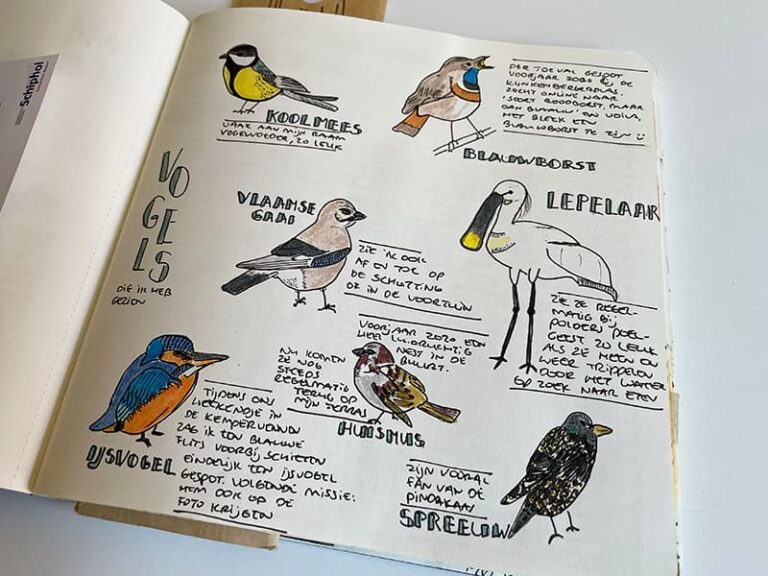 Schiphol
VOGELS
DIE IK HEB
GEZIEN
KOOLMEES
VAAK AAN MIJN RAAM
VOGELVOEDER, ZO LEUK
PER TOEVAL GESPOT
VOORJAAR 2020 BIJ DE
ZOCHT ONLINE NAAR
'SOORT ROODBORST, MAAR
DAN BLAUW' EN VOILA,
HET BLEEK EEN
BLAUWBORST TE ZIJN
BLAUWBORST
VLAAMSE
GAAI
ZIE IK OOK
AF EN TOE OP
DE SCHUTTING
OF IN DE VOORTUIN
LEPELAAR
ZIE ZE REGEL-
MATIG BIJ
POLDERS POEL-
GEEST ZO LEUK
ALS ZE HEEN EN
WEER TRIPPELEN
DOOR HET WATER
OP ZOEK NAAR ETEN
VOORJAAR 2020 EEN
HEEL LUIDRUCHTIG
NEST IN DE
BUURT.
NU KOMEN
ZE NOG
STEEDS
REGELMATIG
TERUG OP
MIJN TERRAS
HUISMUS
IJSVOGEL
TIJDENS ONS
WEEKENDJE IN
DE KEMPERVENNEN
ZAG IK EEN BLAUWE
FLITS VOORBIJ SCHIETEN
EINDELIJK EEN IJSVOGEL
GESPOT. VOLGENDE MISSIE:
HEM OOK OP DE
FOTO KRIJGEN
ZIJN VOORAL
FAN VAN DE
PINDAKAAS
SPREEUW